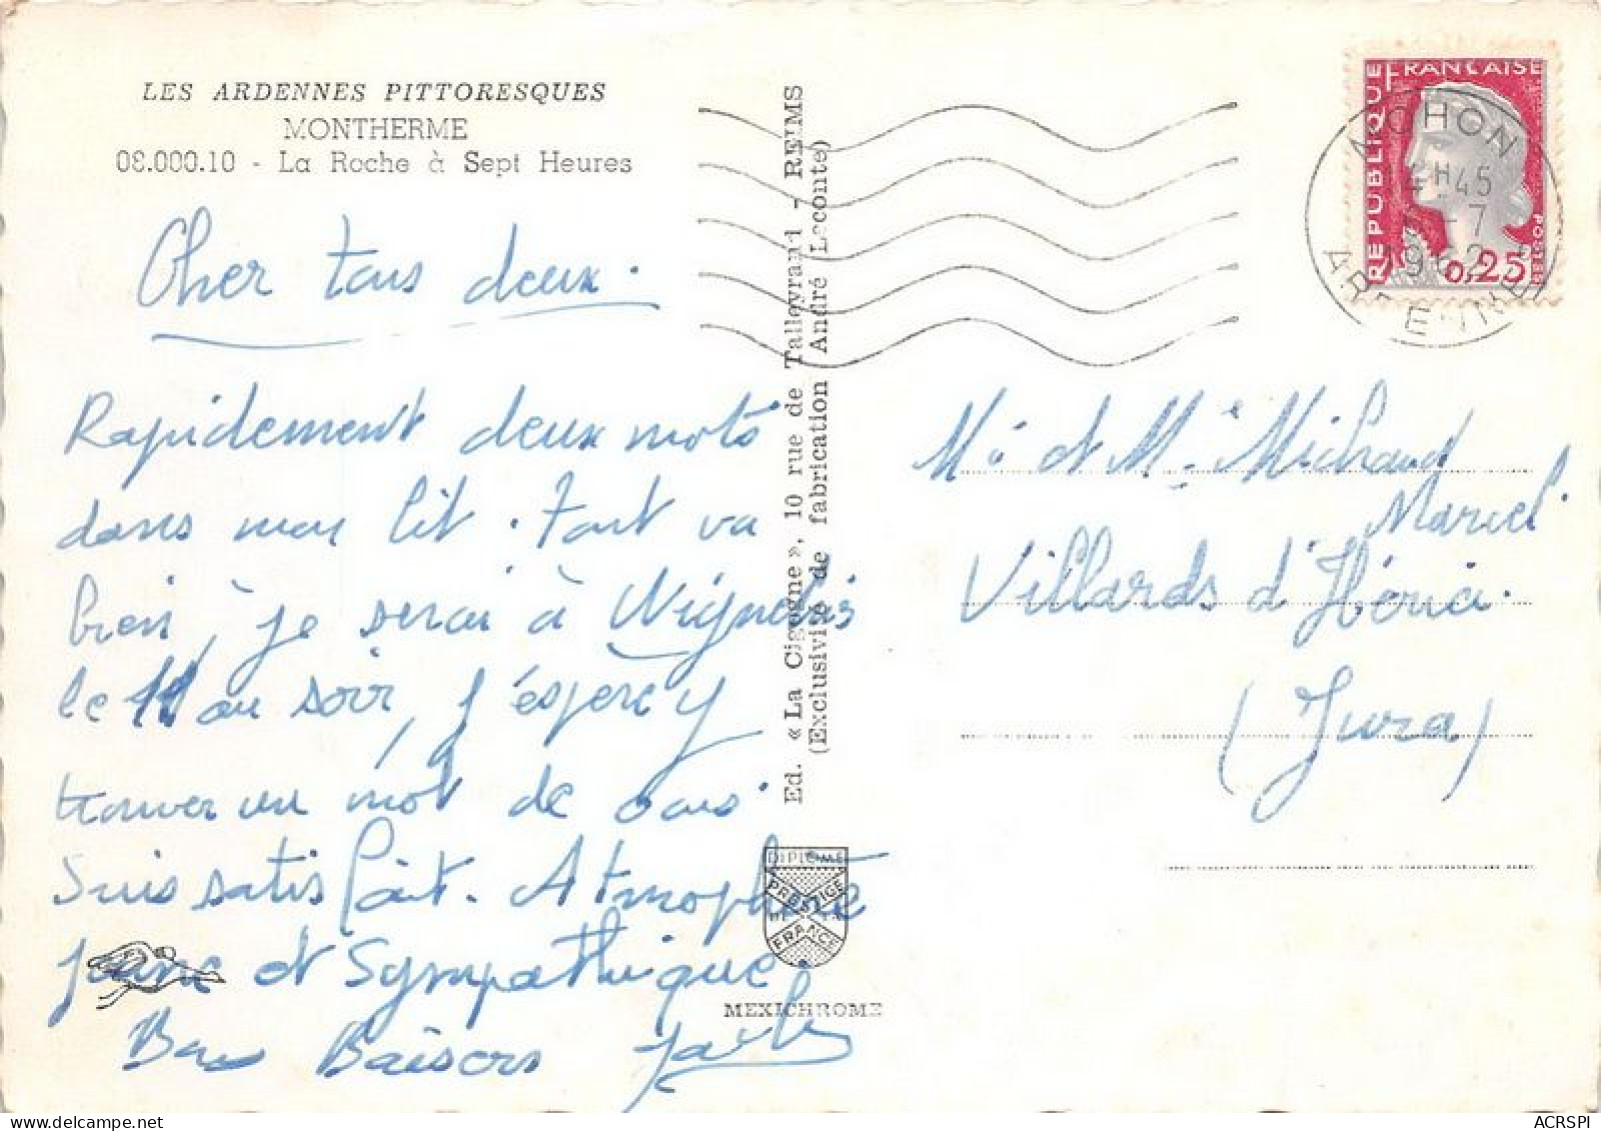 LES ARDENNES PITTORESQUES
MONTHERME
08.000.10 - La Roche à Sept Heures
Cher tous deux.
Rapidement deux mots
dans mon lit. Tout va
bien, je serai à
le 11 au soir, j'espère y
trouver un mot de vous.
Suis satisfait. Atmosphère
jeune et Sympathique
Bons Baisers
Ed. « La Cigogne », 10 rue de Talleyrand - REIMS
(Exclusivité de fabrication André Leconte)
DIPLOME
PRESTIGE
DE LA
FRANCE
MEXICHROME
REPUBLIQUE FRANÇAISE
0,25
POSTES
MOHON
14H45
-7
1962
ARDENNES
Mr et Me Michaud
Marcel
Villards d'Héria.
(Jura)
ACRSPI